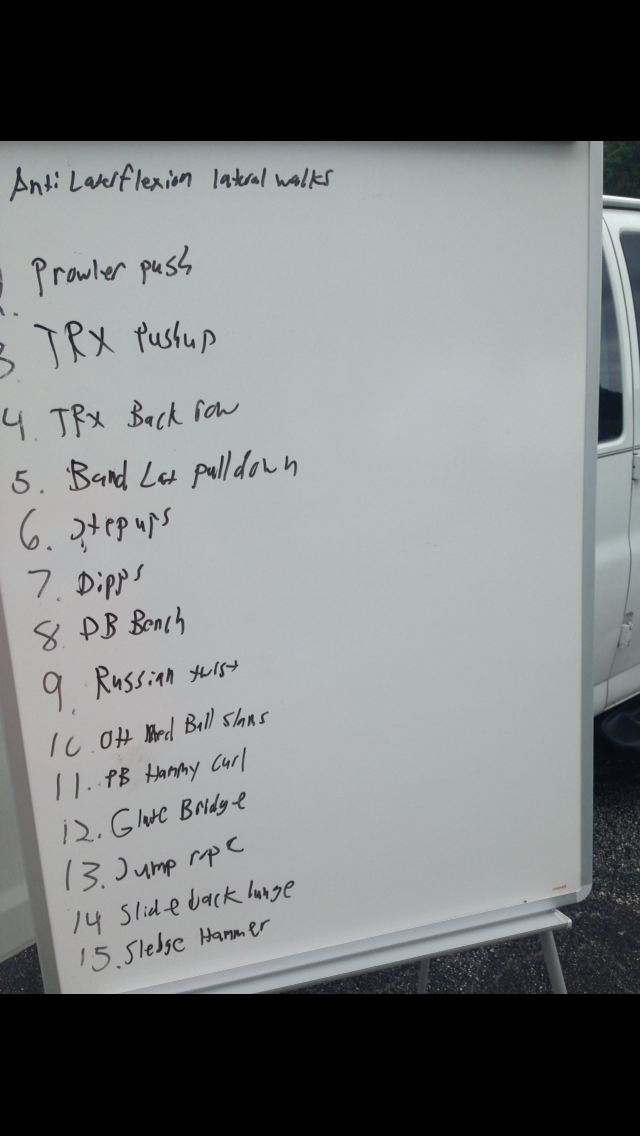 Anti Laterflexion lateral walks
. Prowler push
3 TRX Pushup
4. TRX Back row
5. Band Lat pulldown
6. Step ups
7. Dipps
8 DB Bench
9. Russian twist
10. OH Med Ball slams
11. PB Hammy Curl
12. Glute Bridge
13. Jump rope
14 Slide back lunge
15. Sledge Hammer